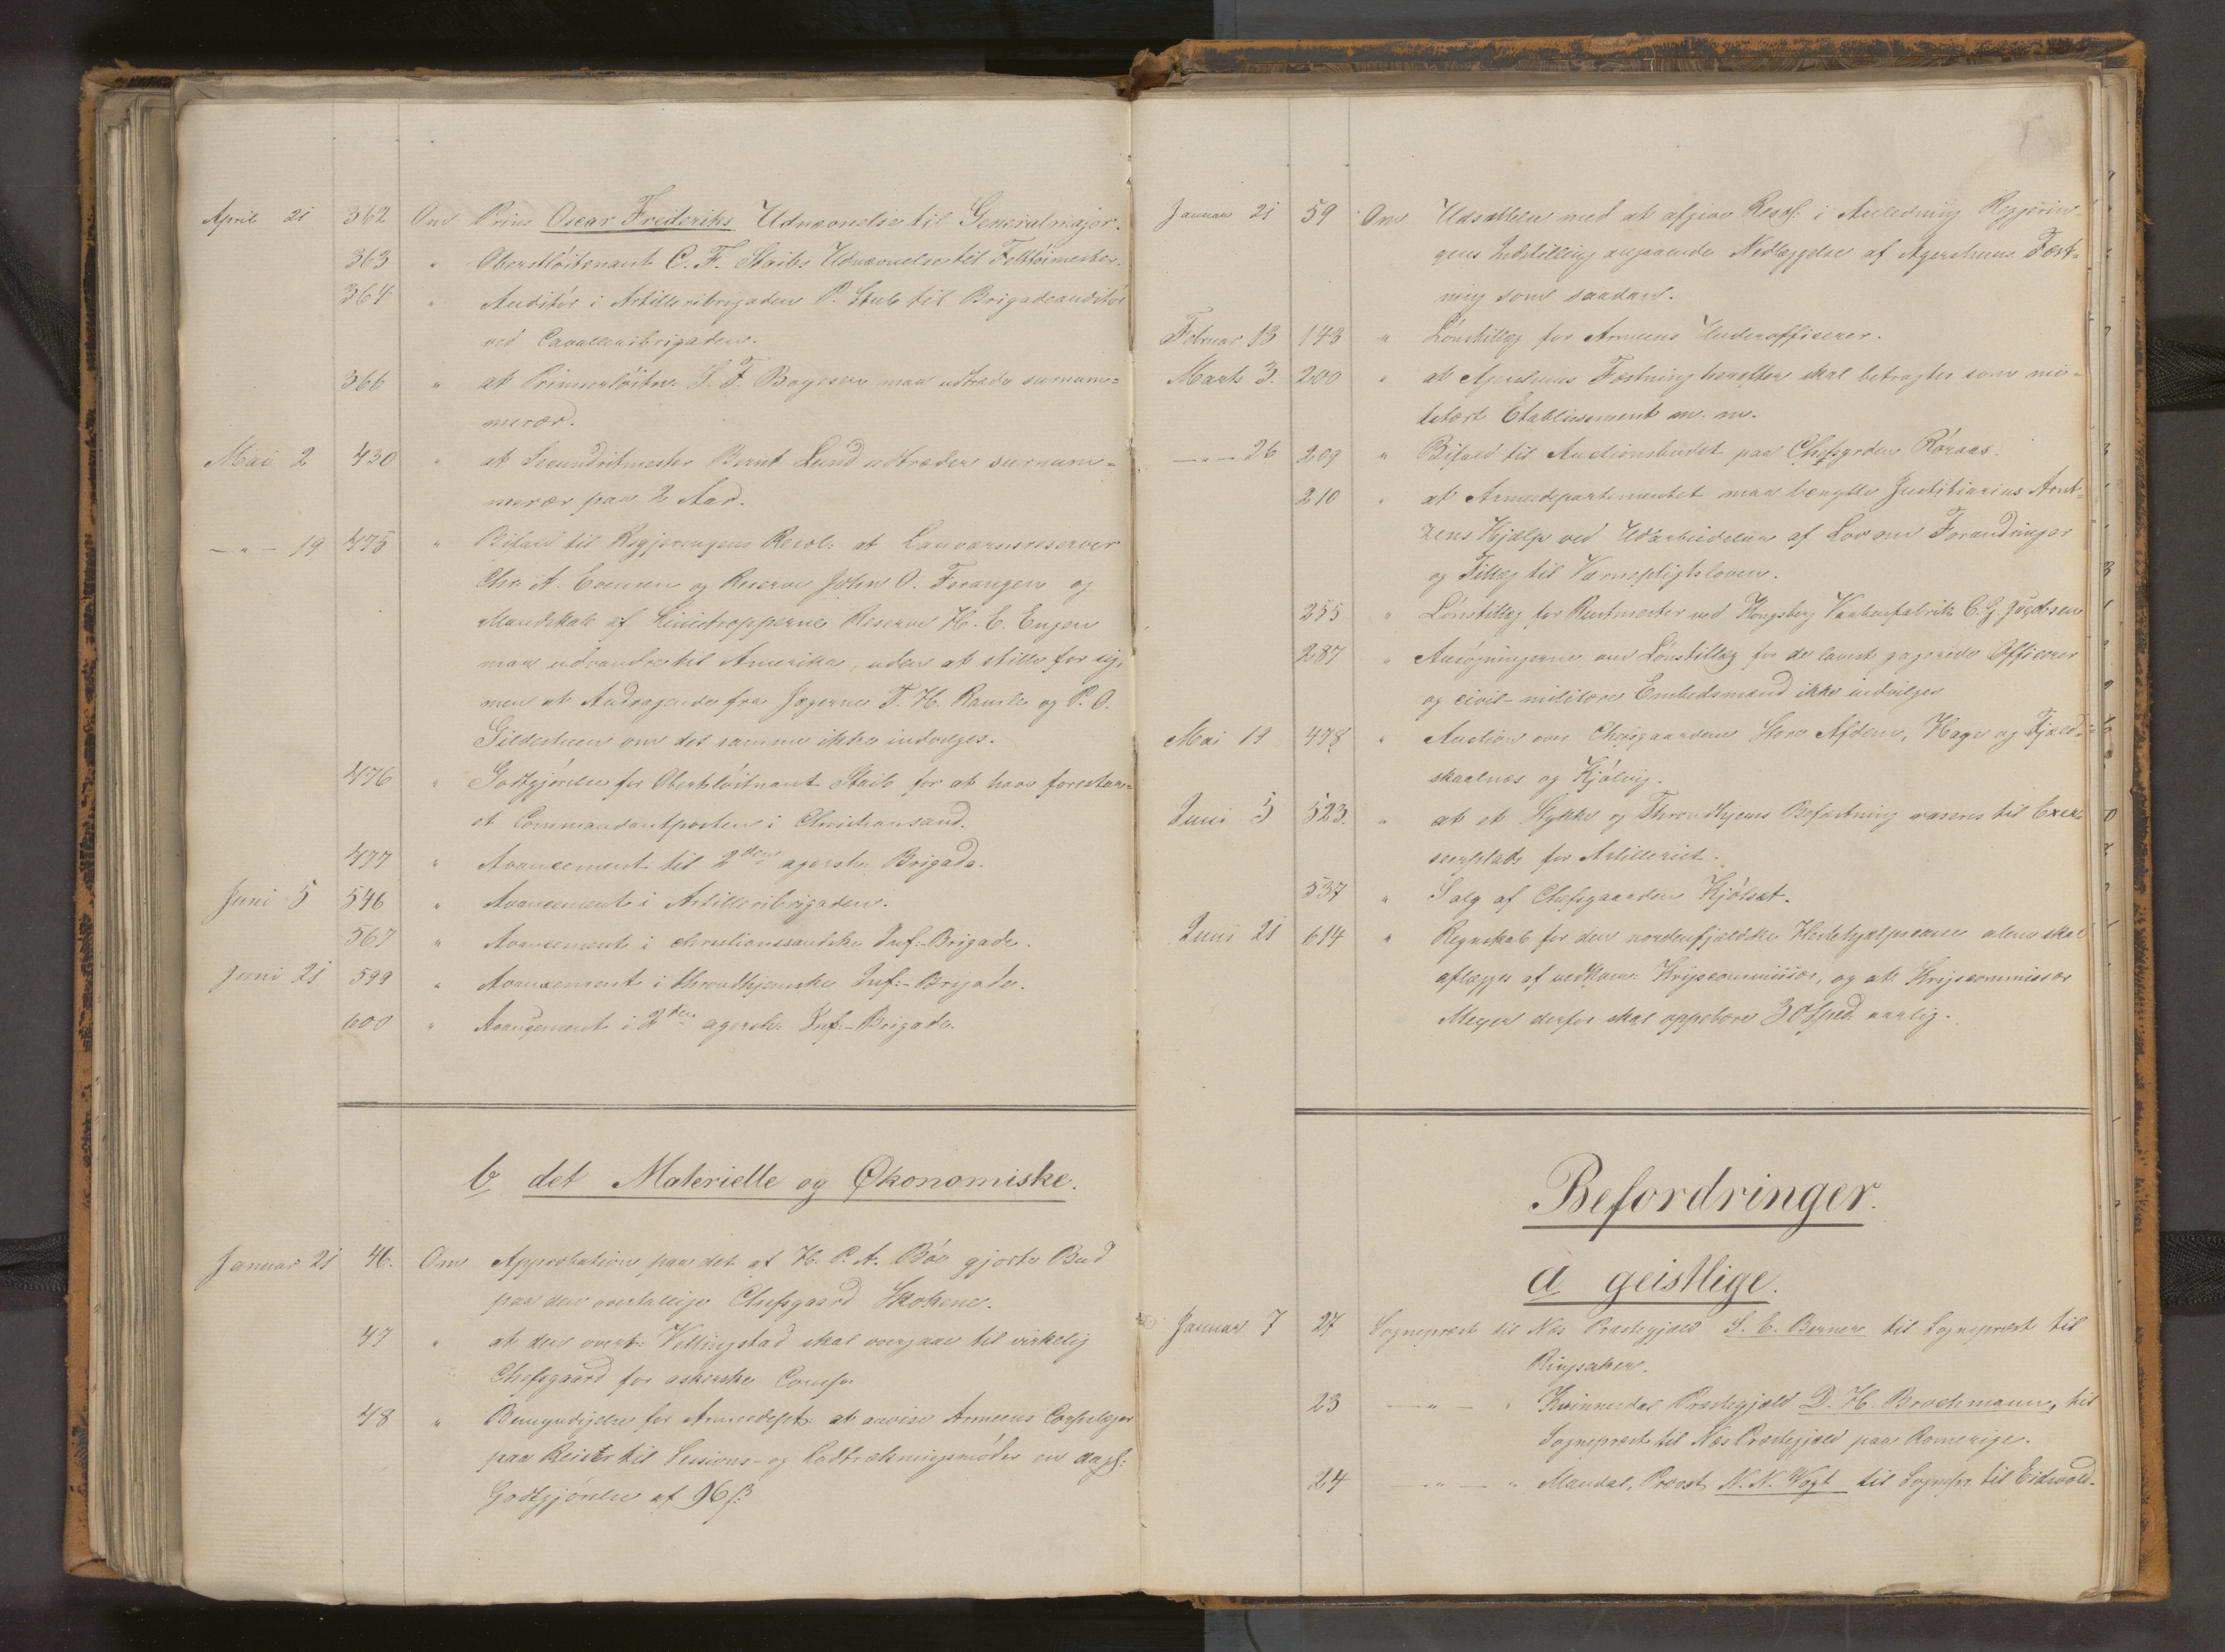 April 21 362 Om Prins Oscar Frederiks Udnævnelse til Generalmajor.
363 " Oberstlöitenant C. F. Staibs Udnævnelse til Felttöimester.
364 " Auditör i Artilleribrigaden P. Stub til Brigadeauditör
ved Cavalleribrigaden.
366 " at Primierlöitn: S. F. Bagesen maa udtræde surnum=
merær.
Mai 2 430 " at Secundritmester Bernt Lund udtræder surnum=
merær paa 2 Aar.
— " — 19 475 " Bifald til Regjeringens Resol: at Landværnsreserver
Chr. A. Evensen og Reserve John O. Forangen og
Mandskab af Linietropperne Reserve H. E. Engen
maa udvandre til Amerika, uden at stille for sig,
men at Andragende fra Jægerne T. H. Ramle og P. O.
Gildesheen om det samme ikke indvilges.
476 " Godtgjörelse for Oberstlöitnant Staib for at have forestaa=
et Commandantposten i Christiansand.
477 " Avancement til 2den agersh: Brigade.
Juni 5 546 " Avancement i Artilleribrigaden.
567 " Avancement i christianssandske Inf:-Brigade.
Juni 21 599 " Avancement i throndhjemske Inf:-Brigade.
600 " Avangement i 2den agersh: Inf:-Brigade.
b det Materielle og Økonomiske.
Januar 21 46. Om Approbation paa det af H. P. A. Böe gjorte Bud
paa den overtallige Chefsgaard Skokene.
47 " at den overt: Vellingstad skal overgaae til virkelig
Chefsgaard for askerske Comp:
48 " Bemyndigelse for Armeedept: at anvise Armeens Corpslæger
paa Reiser til Sessions- og Lodtrækningsmöder en dagl:
Godtgjörelse af 96 ß:
Januar 21 59 Om Udsættelse med at afgive Resol: i Anledning Regjerin=
gens Indstilling angaaende Nedlæggelse af Agershuus Fæst=
ning som saadan.
Februar 13 143 " Lönstillæg for Armeens Underofficerer.
Marts 3. 200 " at Agershuus Fæstning herefter skal betragtes som mi=
litært Etablissement m. m.
— " — 26 209 " Bifald til Auctionsbudet paa Chefsgrden Röraas.
210 " at Armeedepartementet maa benytte Justitiarius Arnt=
zens Hjælp ved Udarbeidelsen af Lov om Forandringer
og Tillæg til Værnepligtsloven.
255 " Lönstillæg for Rustmester ved Kongsberg Vaabenfabrik C. G. Justesen
287 " Ansögningerne om Lönstillæg for de lavest gagerede Officerer
og civil-militære Embedsmænd ikke indvilges
Mai 19 478 " Auction over Chefsgaardene Store Afdem, Hage og Fjeld=
skaalnes og Kjölvig.
Juni 5 523. " at et Stykke og Throndhjems Befæstning raseres til Exer=
seerplads for Artilleriet.
537 " Salg af Chefsgaarden Kjölset.
Juni 21 614 " Regnskab for den nordenfjeldske Hestehjælpscasse alene skal
aflægges af vedkom: Krigscommissær, og at Krigscommissær
Meyer derfor skal oppebære 30 Spd: aarlig.
Befordringer.
a geistlige.
Januar 7 27 Sognepræst til Næs Præstegjæld S. C. Berner til Sognepræst til
Ringsaker.
23 — " — " Kvinnesdal Præstegjæld D. H. Brochmann, til
Sognepræst til Næs Præstegjæld paa Romerige.
24 — " — " Mandal, Provst, N. N. Vogt til Sognepr. til Eidsvold.